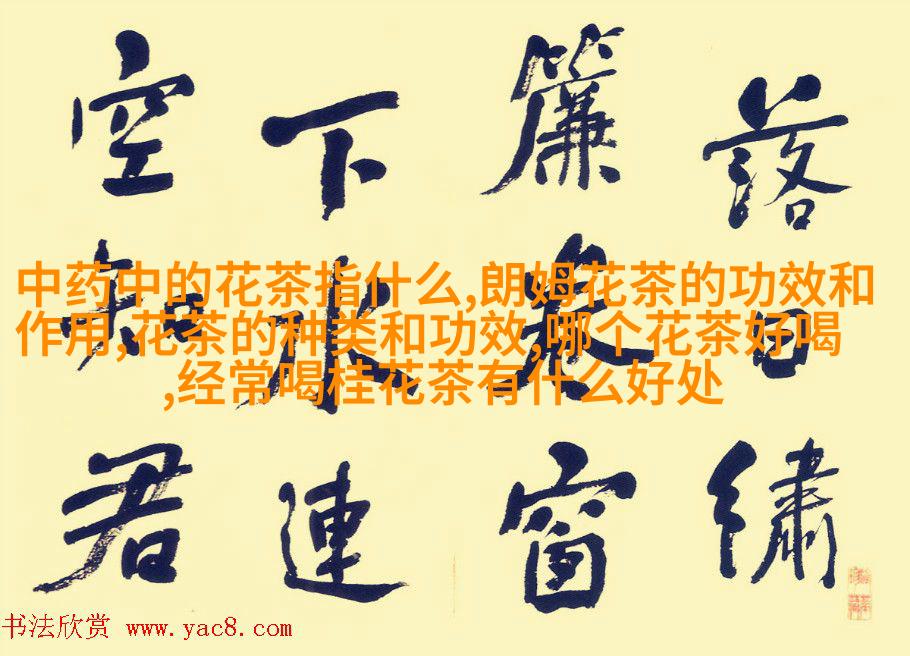 落日繡
簾卷窗
下水連
空知君
中药中的花茶指什么,朗姆花茶的功效和
作用,花茶的种类和功效,哪个花茶好喝
,经常喝桂花茶有什么好处
书法欣赏 www.yac8.com